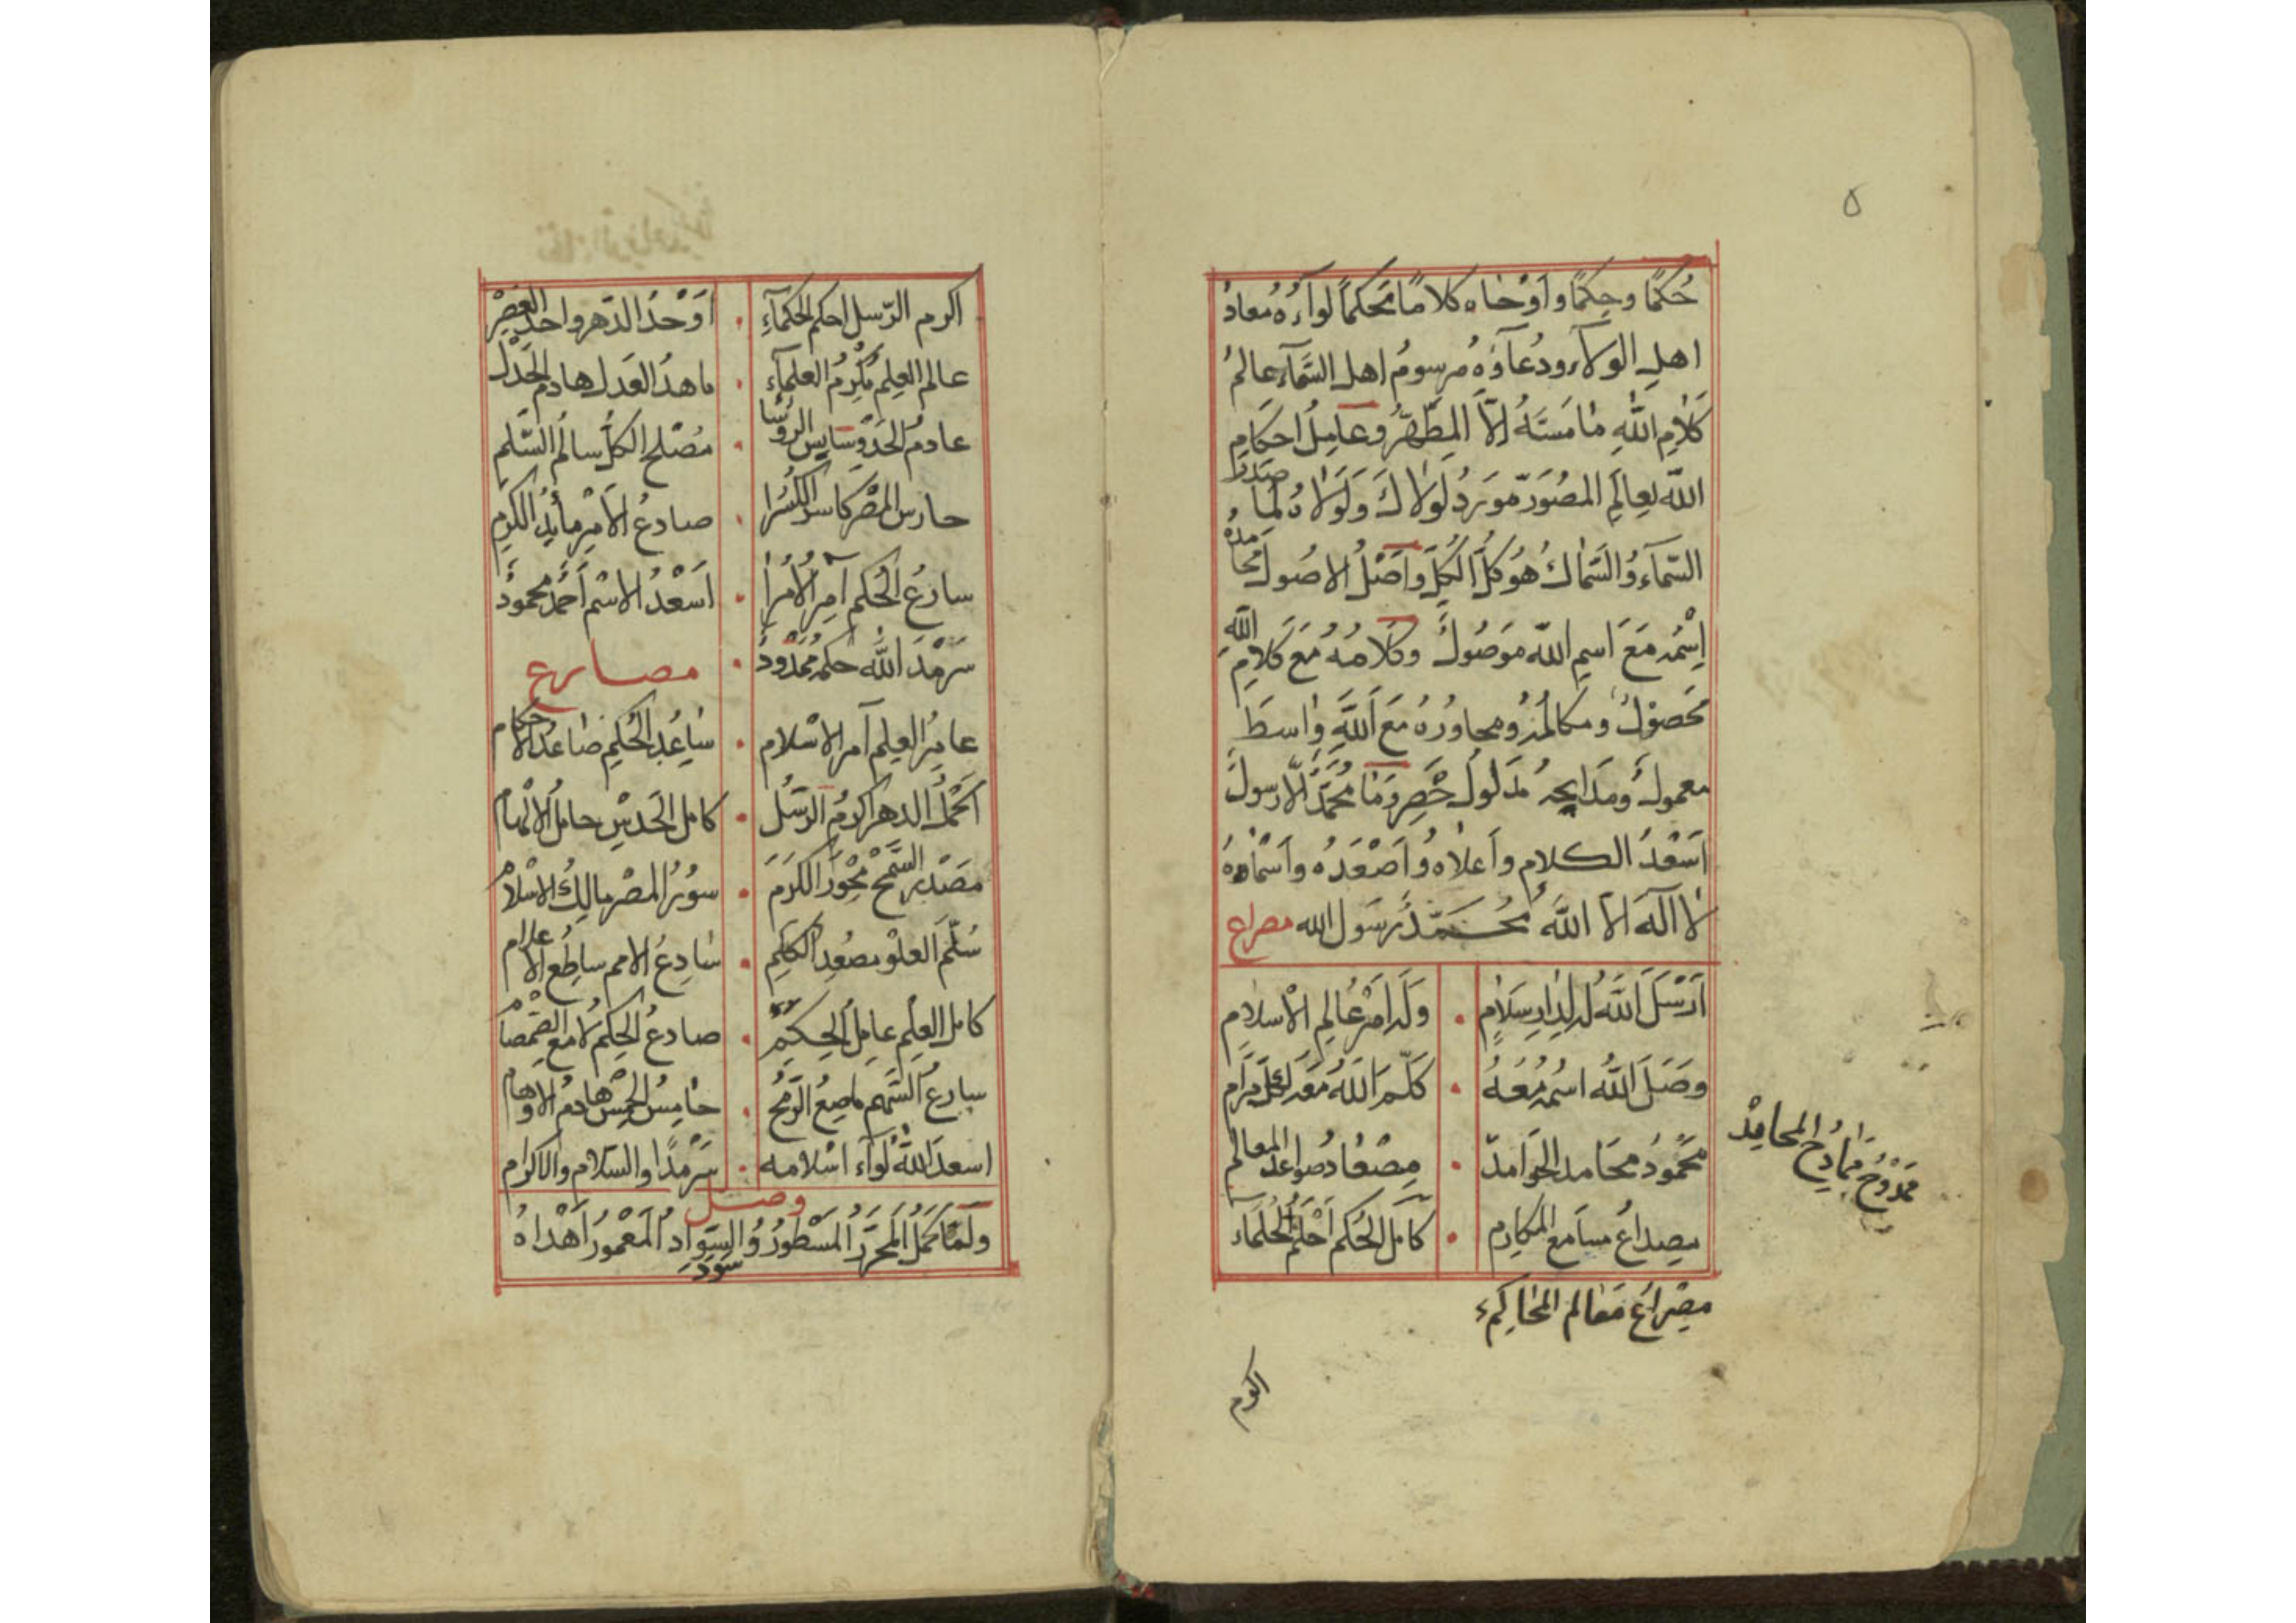 ٥
حُكمًا وحِكمًا واَوْحَاه كلامًا مُحكمًا لواَءُهُ مُعادُ
اهلِ الولآء ودُعآؤهُ مرسومُ اهل السَّمآء عالمُ
كلامِ اللّٰهِ مَا مَسَّهُ اِلَّا المطَّهَّرُ وعامِلُ احكامِ
اللّٰه لعِالَمِ المصُوَرّ موردُ لولاكَ ولَولاهُ لَمَا صَدَرَ
السّمآءُ والسّماكُ هُوَ كلُّ الكُلِّ واَصْلُ الاصُول محامدُهُ
اِسْمُهُ مَعَ اسمِ اللّٰه مَوصُولٌ وكلامُهُ مَعَ كلامِ اللّٰهِ
محَصوُلٌ ومكالمُهُ ومحاورُهُ مَعَ اللّٰهِ واسطَ
معمولٌ ومَدَايحه مَدلولُ حَصْرِ وَمَا مُحَمَّدٌ اِلّا رسولٌ
اَسْعَدُ الكلامِ واَعلاهُ واَصْعَدُه واَسْمَاهُ
لا اله الا اللّٰه مُحَمَّدٌ رَسَول الله مصراع
اَرْسَلَ اللّٰهُ لِدارِ سَلَامٍ . ولَه اَمْرُ عالمِ الاسْلامِ
وصَلَ اللّٰه اسْمُه مَعَهُ . كلّم اللّٰهُ مَعَه كلَّ مرَام
محمُودُ مَحَامد الحَوَامدّ . مِصْعادُ صواعد المعالم
ممْدُوحُ مَمادح المحامِدْ
مصداعُ مسامع المكارم . كامل الحُكم اَحْلَمُ الحُلَماء
مِصْراعُ مَعَالم المحاكِم
اكرم
اكرم الرّسل احكم الحكمآءِ . اَوْحَدُ الدّهر واحدُ العَصِرْ
عالم العِلم مُكرِمُ العلمآءِ . ماهدُ العَدل هادم الجَدْل
عادمُ الحَدّ وسَايس الرؤسَا . مُصْلح الكلّ سالمُ السّلم
حارس المصْر كاسر الكُسَرا . صادعُ الاَمرِ مأيد الكرم
سارعُ الحُكم آمر الاُمرآ . اَسْعَدُ الاسْم اَحْمَدٌ محمودٌ
سَرْمَدَ اللّٰه حكمَهُ مَمْدُودٌ . مصارع
عامرُ العِلم آمر الاسْلام . سَاعِد الحُكمِ صَاعد الاحكام
اَكْمَلُ الدهر اكرم الرّسُل . كامل الحَدسْ حامل الاِلْهام
مَصْدَر السَّمْح مِحْوَرَ الكرَم . سوُرُ المصْر مالِكُ الاسْلام
سُلّم العلْو مصْعد الكلِم . سَادِعُ الامم ساطِع الاعلام
كامل العِلم عامِل الحِكم . صادعُ الحِكم لامع الصّمصَام
سارعُ السّهم ماصِعُ الرّمح . حَامِسُ الحمسْ هادم الاوهام
اسعدَ اللّٰهُ لواء اسْلامه . سَرْمَدًا والسّلام والاكرام
وصل
ولَمَّا كمَلَ المُحرَّرُ المَسْطورُ والسَّوادُ المَعْمورُ اَهْداهُ
سَوَّدَ